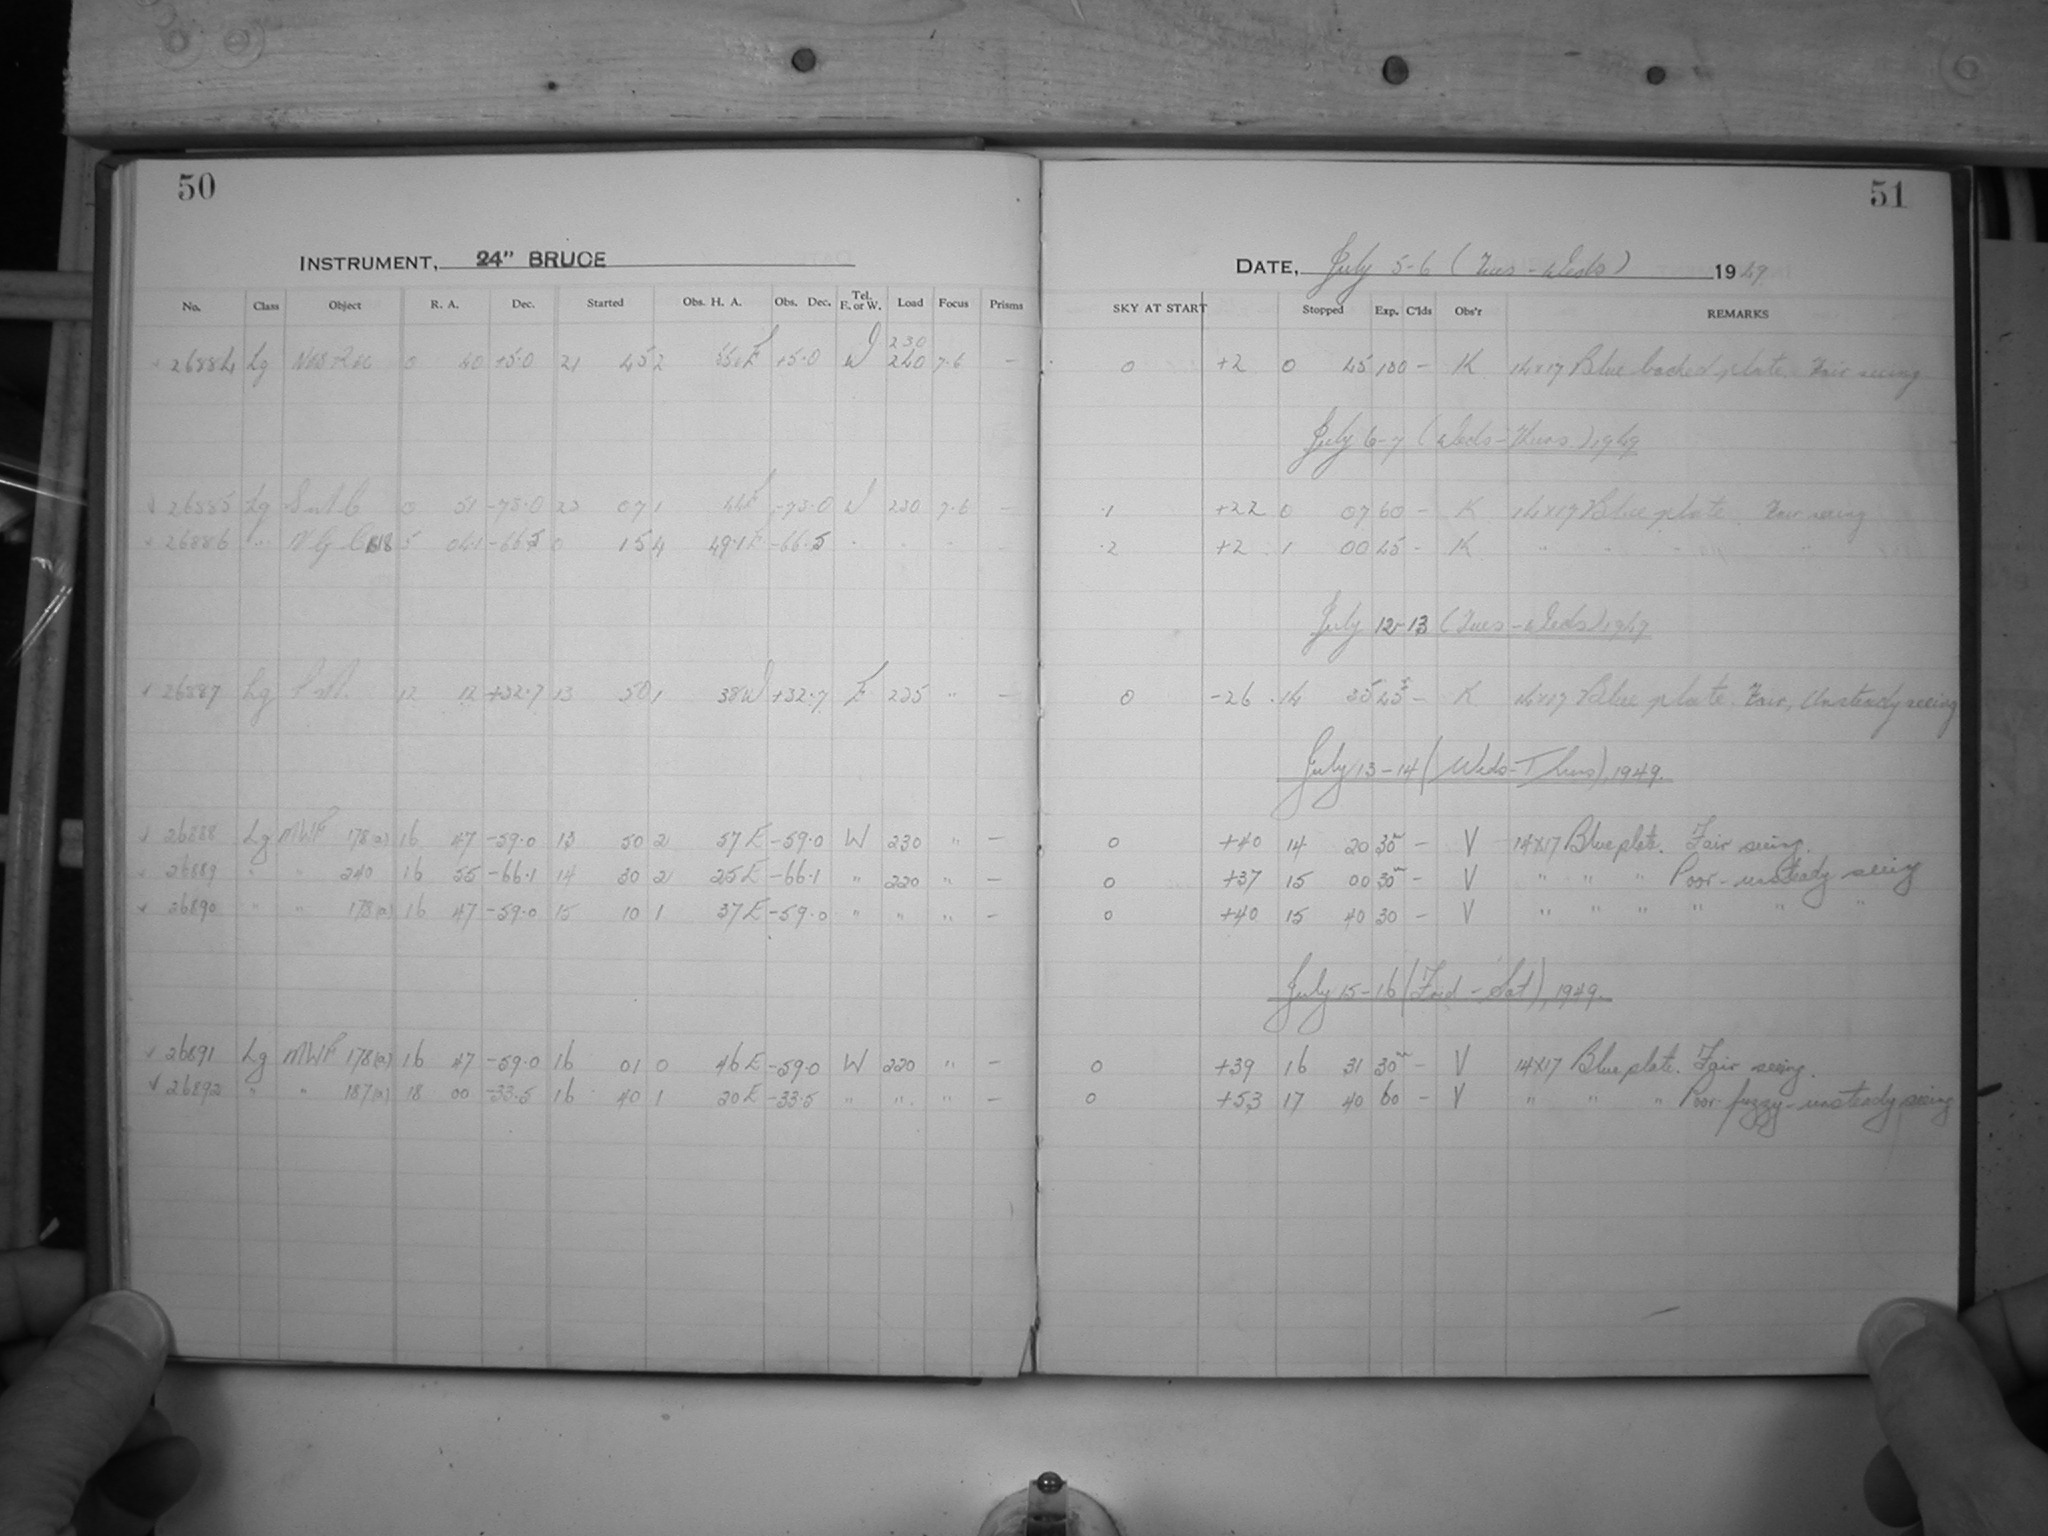 50
INSTRUMENT, 24" BRUCE
No. Class Object R. A. Dec. Started Obs. H. A. Obs. Dec. Tel. E. or W. Load Focus Prisms
230
26884 Lg 0 40 +5.0 21 45 2 55 E +5.0 W 240 7.6 —
26885 Lg S.M.C 0 51 -73.0 23 07 1 44 E -73.0 W 230 7.6 —
26886 " N G C 5 04.1 -66.5 0 15 4 49.1 E -66.5
26887 Lg 12 12 +32.7 13 50 1 38 W +32.7 E 235 " —
26888 Lg MWF 178(a) 16 47 -59.0 13 50 2 57 E -59.0 W 230 " —
26889 " " 240 16 55 -66.1 14 30 2 25 E -66.1 " 220 " —
26890 " " 178(a) 16 47 -59.0 15 10 1 37 E -59.0 " " " —
26891 Lg MWF 178(a) 16 47 -59.0 16 01 0 46 E -59.0 W 220 " —
26892 " " 187(a) 18 00 -33.5 16 40 1 20 E -33.5 " " " —
51
DATE, July 5-6 (Tues - Weds) 1949
SKY AT START Stopped Exp. C'lds Obs'r REMARKS
0 +2 0 45 180 — K 14x17 Blue backed plate. Fair seeing
July 6-7 (Weds-Thurs) 1949
.1 +22 0 07 60 — K 14x17 Blue plate. Fair seeing
.2 +2 1 00 45 — K " " " "
July 12-13 (Tues - Weds) 1949
0 -26 14 35 45 — K 14x17 Blue plate. Fair, Unsteady seeing
July 13-14 (Weds-Thurs), 1949.
0 +40 14 20 30m — V 14x17 Blue plate. Fair seeing.
0 +37 15 00 30m — V " " " Poor - unsteady seeing
0 +40 15 40 30 — V " " " " " "
July 15-16 (Frid - Sat), 1949.
0 +39 16 31 30m — V 14x17 Blue plate. Fair seeing.
0 +53 17 40 60 — V " " " Poor-fuzzy-unsteady seeing